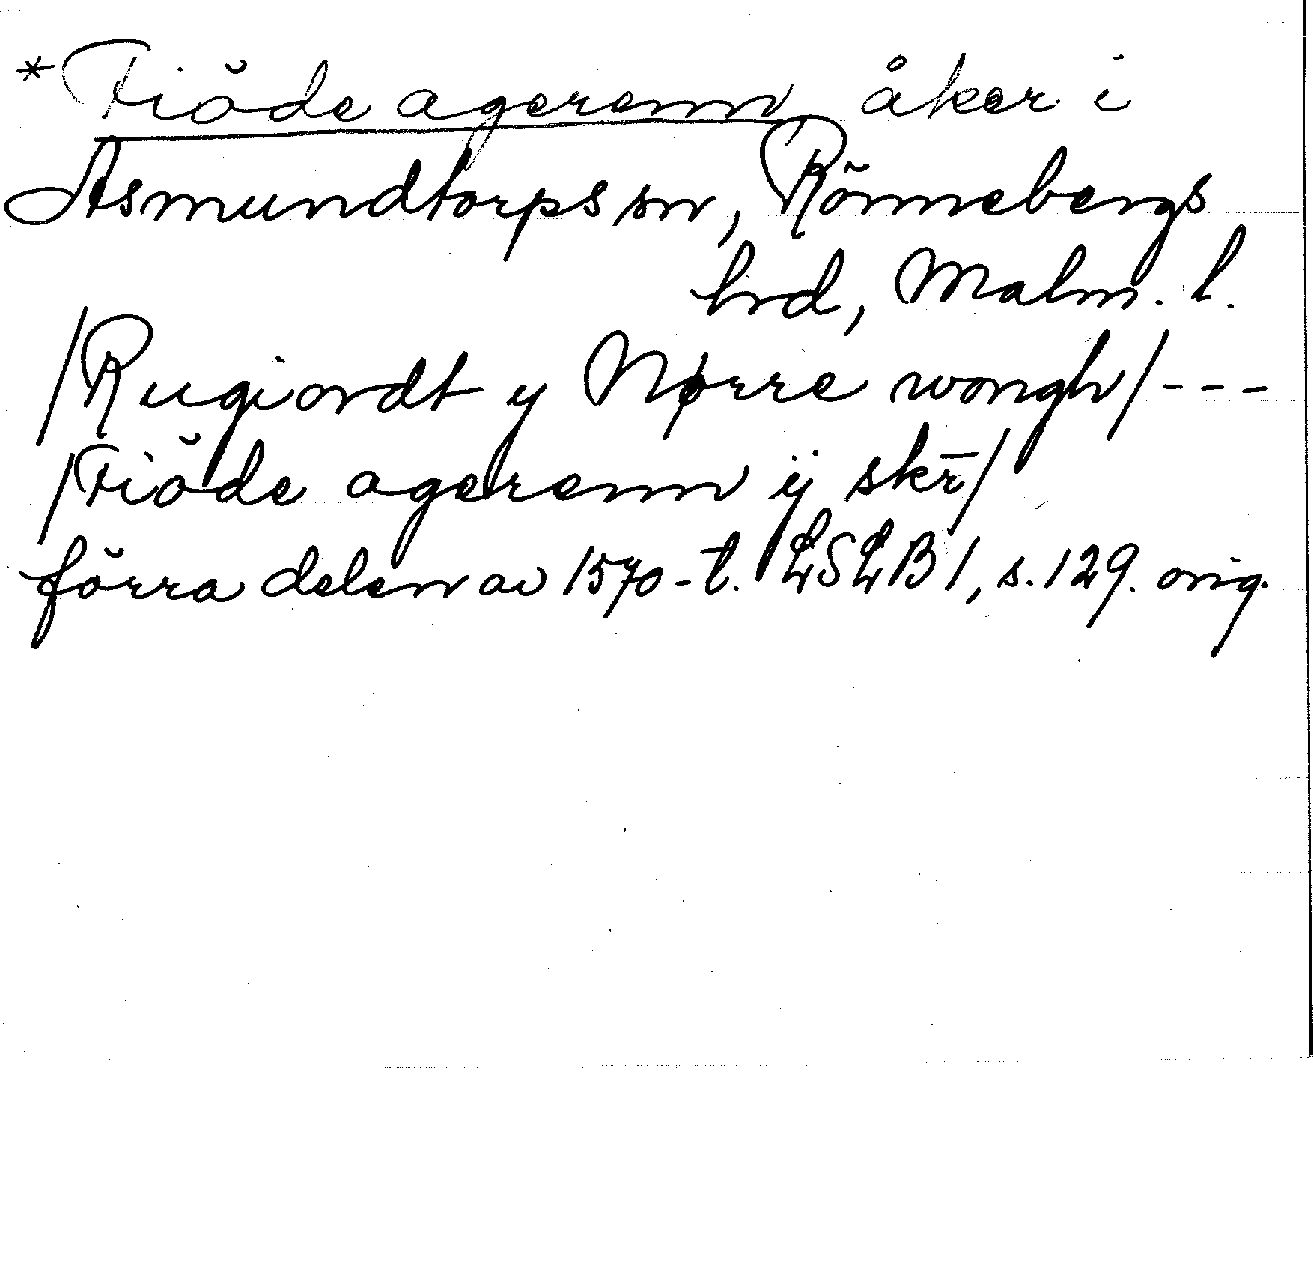 *Fiŏde agerenn, åker i
Asmundtorps sn, Rönnebergs
hrd, Malm. l.
/Rugiordt y Nørre wongh/ ---
/Fiŏde agerenn ij skr̄/
förra delen av 1570-t. LSLB 1, s. 129. orig.